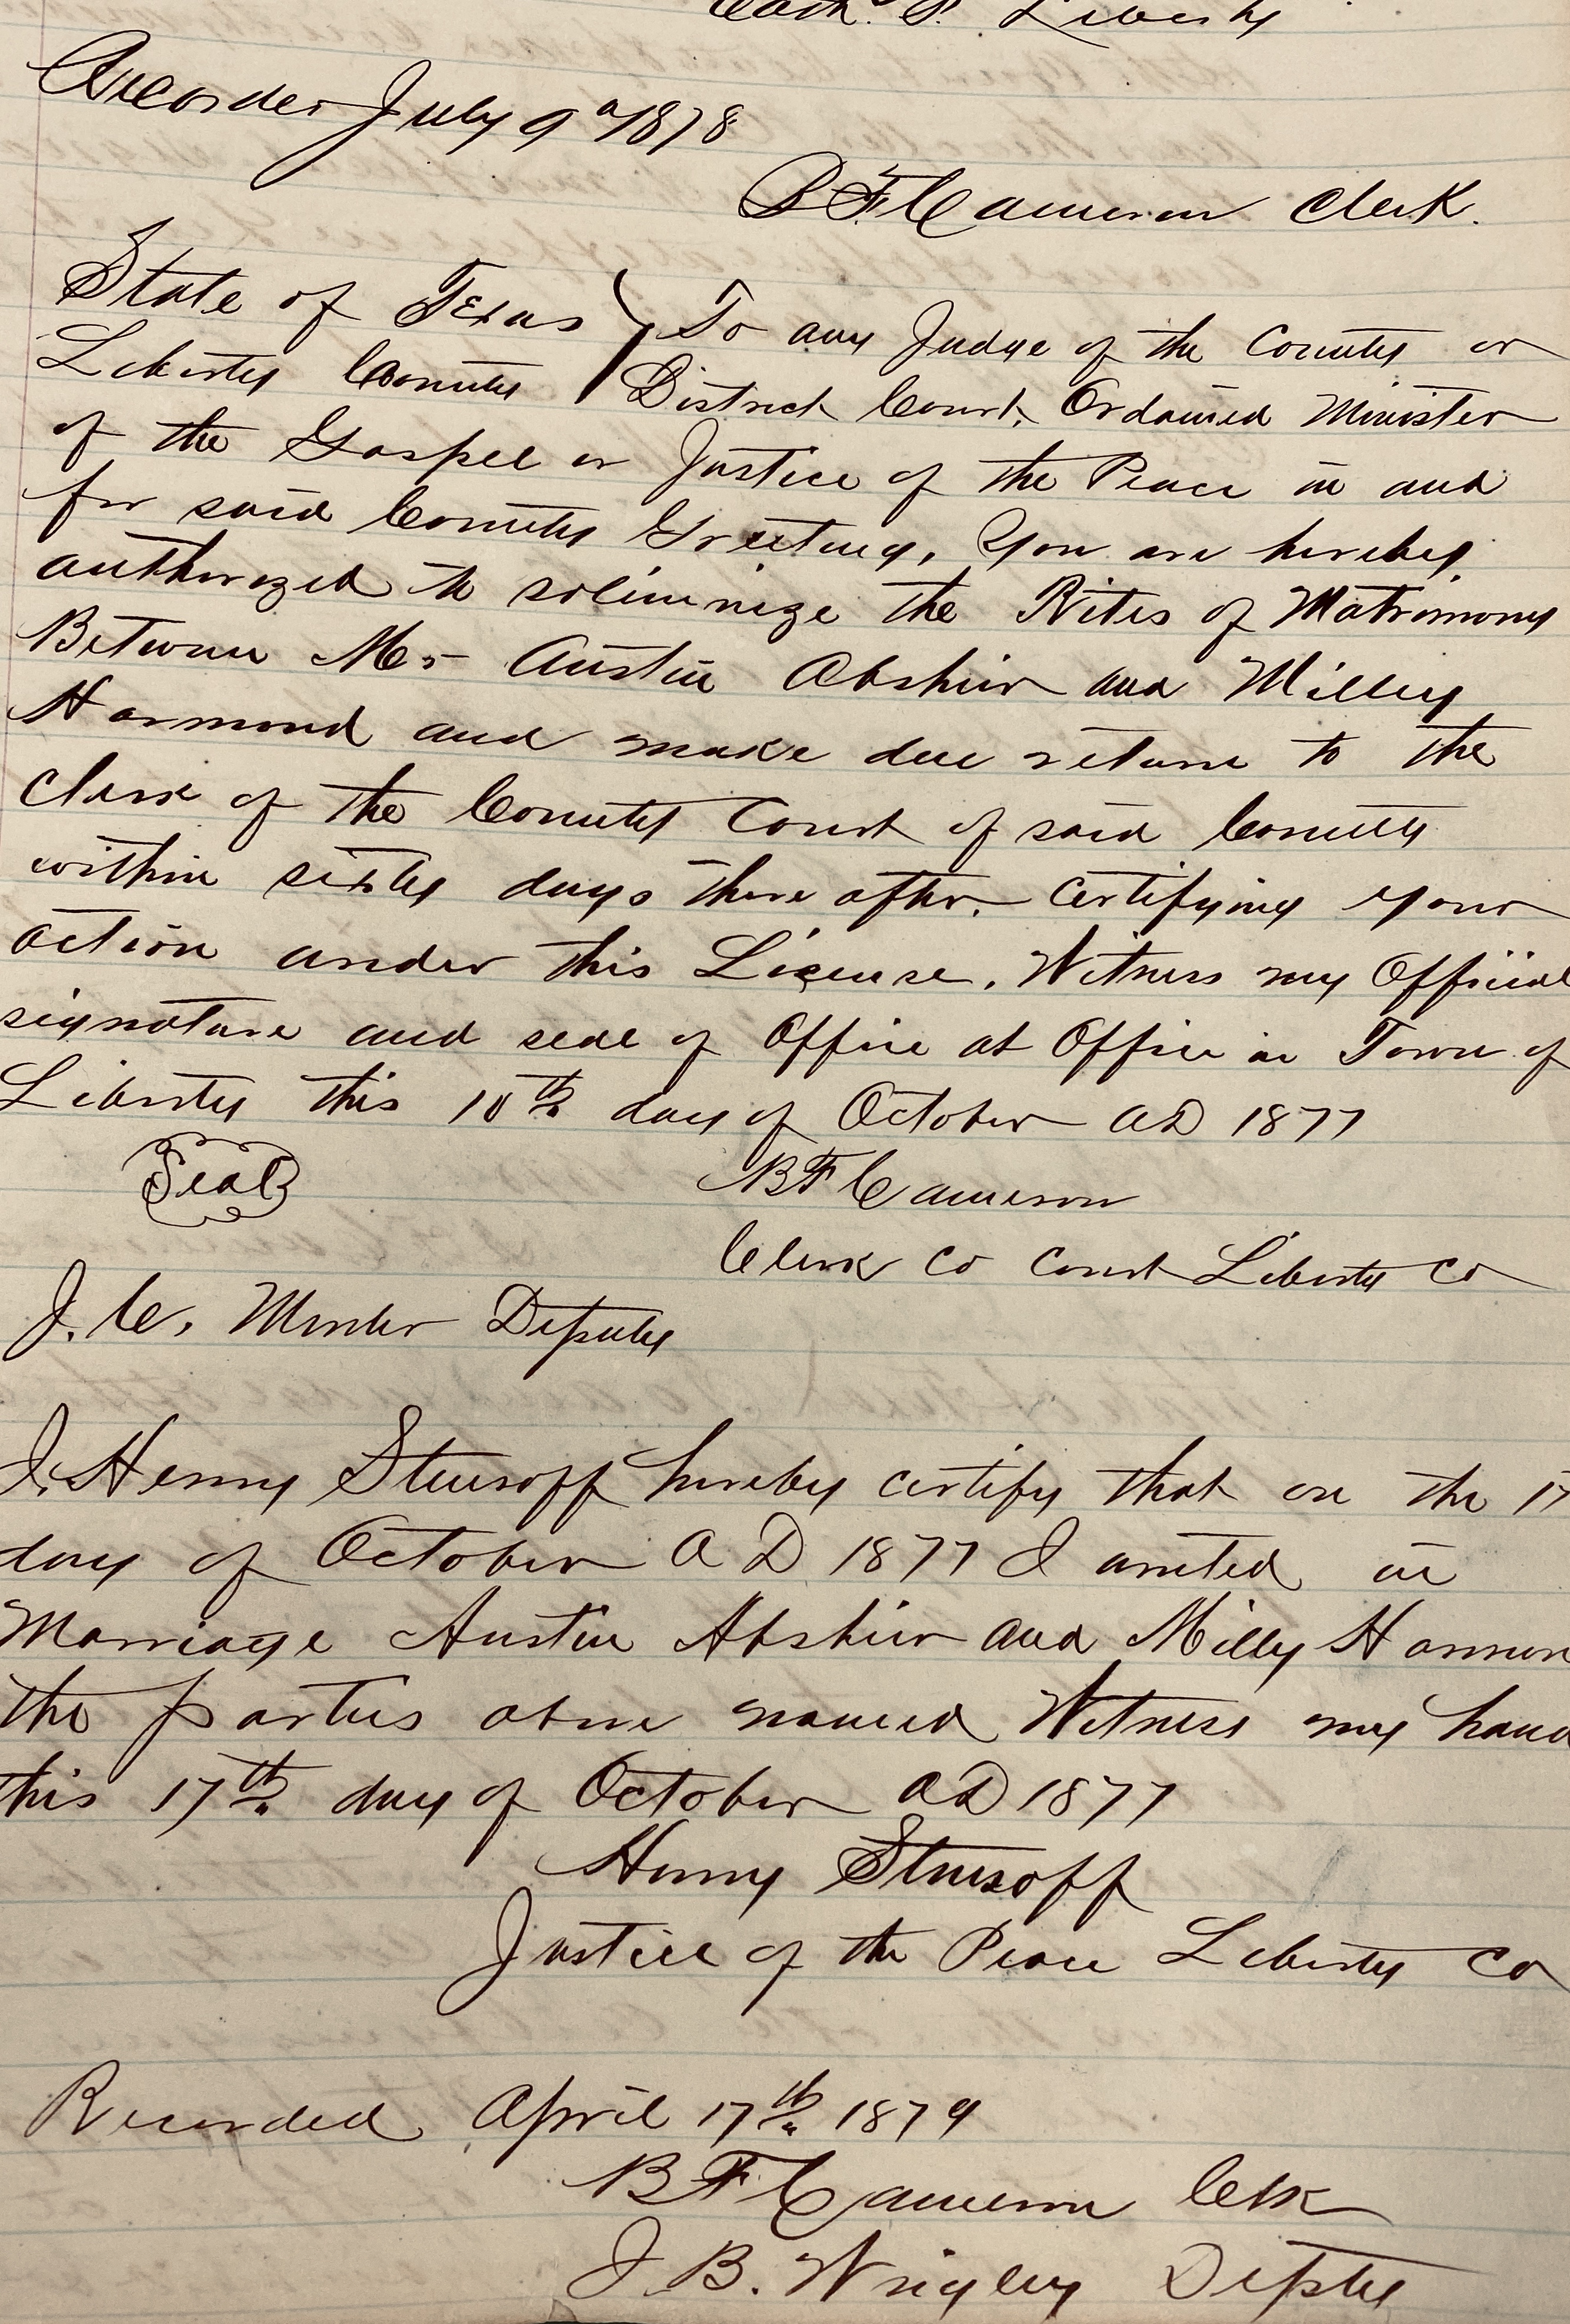 Cath. P. Liberty
Recorded July 9th 1878
B F Cameron Clerk.
State of Texas } To any Judge of the County or
Liberty County } District Court, Ordained Minister
of the Gospel or Justice of the Peace in and
for said County Greeting, You are hereby
authorized to solimnize the Rites of Matrimony
Between Mr Austin Abshier and Milley
Harmond and make due return to the
Clerk of the County Court of said County
within sixty days there after. Certifying your
action under this License. Witness my Official
signature and seal of Office at Office in Town of
Liberty this 10th day of October AD 1877
Seal
B F Cameron
Clerk Co Court Liberty Co
J. C. Deputy
I, Henry Stusoff hereby certify that on the 17
day of October A D 1877 I united in
Marriage Austin Abshier and Milly Harmon
the parties above named Witness my hand
this 17th day of October AD 1877
Henry Stusoff
Justice of the Peace Liberty Co
Recorded April 17th 1879
B F Cameron Clk
J. B. Wrigley Depty